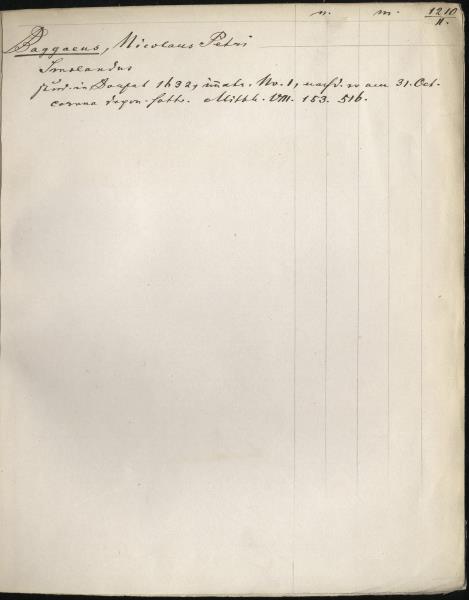 n. m. 1210
11.
Baggaeus, Nicolaus Petri
Smolandus
stud. in Dorpat 1632, immatr. No. 1, nachd. er am 31. Oct.
corona depon. hatte. Mitth. VIII. 153. 516.